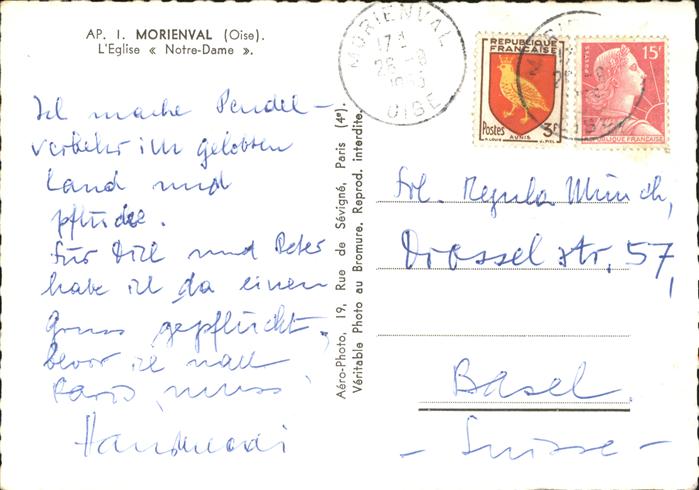 AP. I. MORIENVAL (Oise).
L'Eglise « Notre-Dame ».
Ich mache Pendel-
verkehr im gelobten
Land und
pflücke.
Für Dich und Peter
habe ich da einen
Gruss gepflückt,
bevor ich nach
Paris muss!
Aéro-Photo, 19, Rue de Sévigné, Paris (4e).
Véritable Photo au Bromure. Reprod. interdite.
MORIENVAL
OISE
REPUBLIQUE
FRANÇAISE
Postes 3F
AUNIS
15F
POSTES
REPUBLIQUE FRANÇAISE
Frl. Regula Münch,
Drosselstr. 57,
Basel
- Suisse -